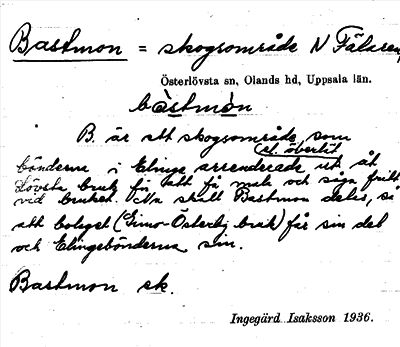 Bastmon = skogsområde N Fälaren,
Österlövsta sn, Olands hd, Uppsala län.
bàstmòn
B. är ett skogsområde som
el. överlät
bönderna i Elinge arrenderade ut åt
Lövsta bruk för att få mala och såga fritt
vid bruket. Nu skall Bastmon delas, så
att bolaget (Gimo-Österby bruk) får sin del
och Elingebönderna sin.
Bastmon sk.
Ingegärd Isaksson 1936.